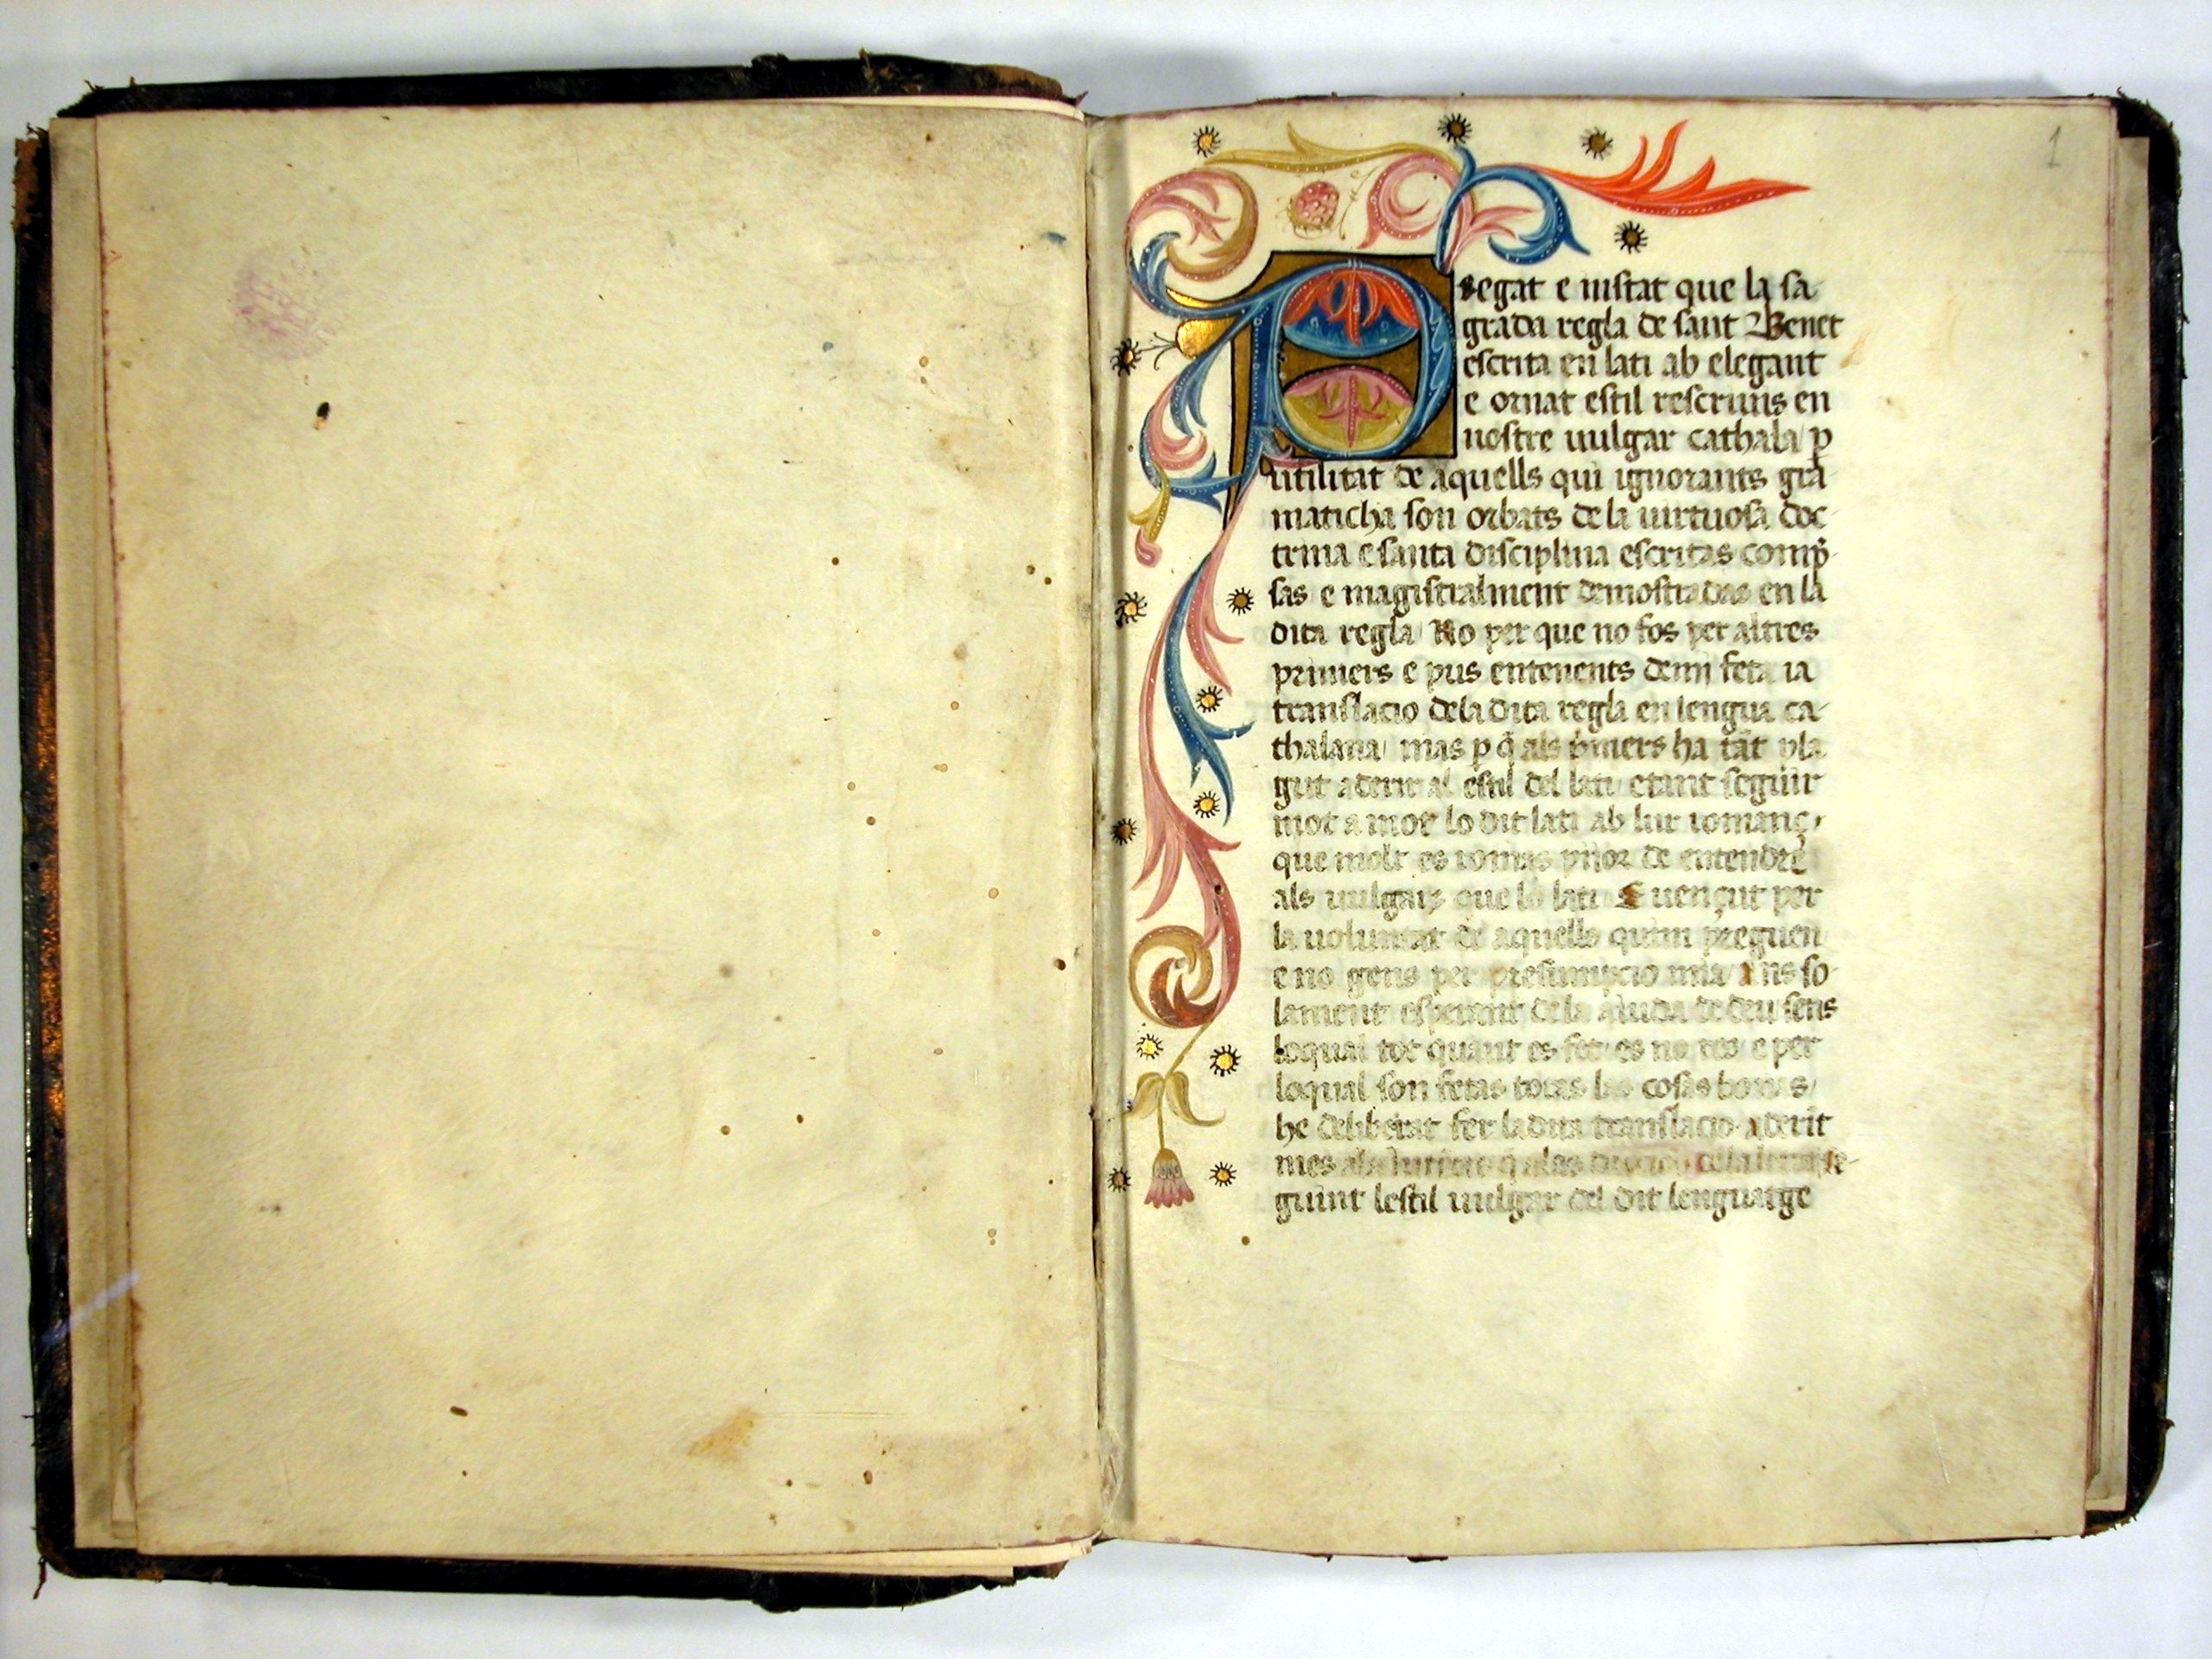 1
Pregat e instat que la sa-
grada regla de sant Benet
escrita en lati ab elegant
e ornat estil rescriuis en
nostre uulgar cathala p
utilitat de aquells qui ignorants gra-
maticha son orbats de la uirtuosa doc-
trina e santa disciplina escritas comp̄-
sas e magistralment demostradas en la
dita regla No per que no fos per altres
primers e pus entenents de mi feta ia
translacio dela dita regla en lengua ca-
thalana mas p q̄ als p̄mers ha tāt pla
gut aderir al estil del lati e tant seguir
mot a mot lo dit lati ab lur romanç
que molt es romās piior de entendre
als uulgars que lo lati E uençut per
la uoluntat de aquells quim preguen
e no gens per presumpcio mia Ans so-
lament esperant dela aiuda de deu sens
loqual tot quant es fet es no res e per
loqual son fetas totas las cosas bonas
he deliberat fer la dita translacio aderit
mes
guint lestil uulgar del dit lenguatge